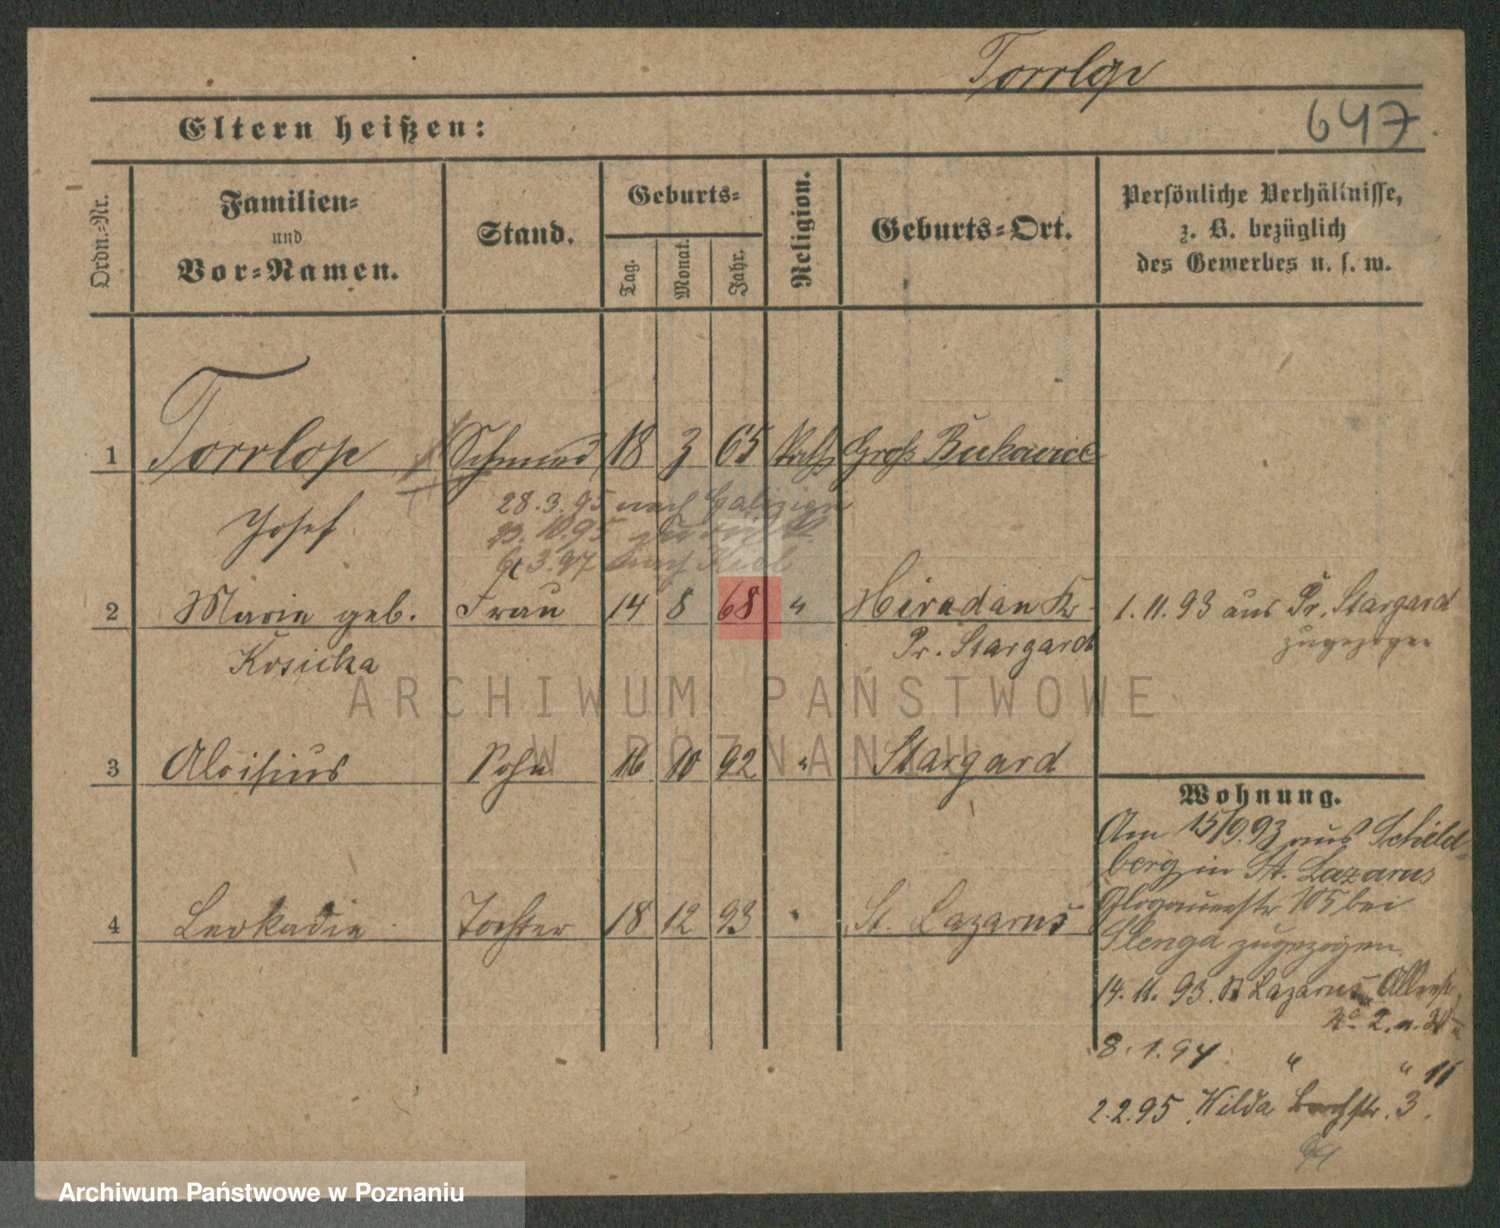 Torrlop
647
Eltern heißen:
Ordn.-Nr.
Familien-
und
Vor-Namen.
Stand.
Geburts-
Tag.
Monat.
Jahr.
Religion.
Geburts-Ort.
Persönliche Verhältnisse,
z. B. bezüglich
des Gewerbes u. s. w.
1 Torrlop Schmied 18 3 65 Kath Groß Bukowice
Josef
28.3.95 nach Galizien
23.10.95 zurück
3.97 nach Kiel
2 Marie geb. Frau 14 8 68 " Hiradan Kr.
Kosicka Pr. Stargard
1.11.93 aus Pr. Stargard
zugezogen
ARCHIWUM PAŃSTWOWE
W POZNANIU
3 Aloisius Sohn 16 10 92 " Stargard
4 Leokadia Tochter 18 12 93 " St. Lazarus
Wohnung.
Am 15/9.93 aus Schild-
berg in St. Lazarus
Glogauerstr 105 bei
Slenga zugezogen.
14.11.93. St Lazarus
No. 2.
8.1.94. " " 11
2.2.95. Wilda 3.
Archiwum Państwowe w Poznaniu